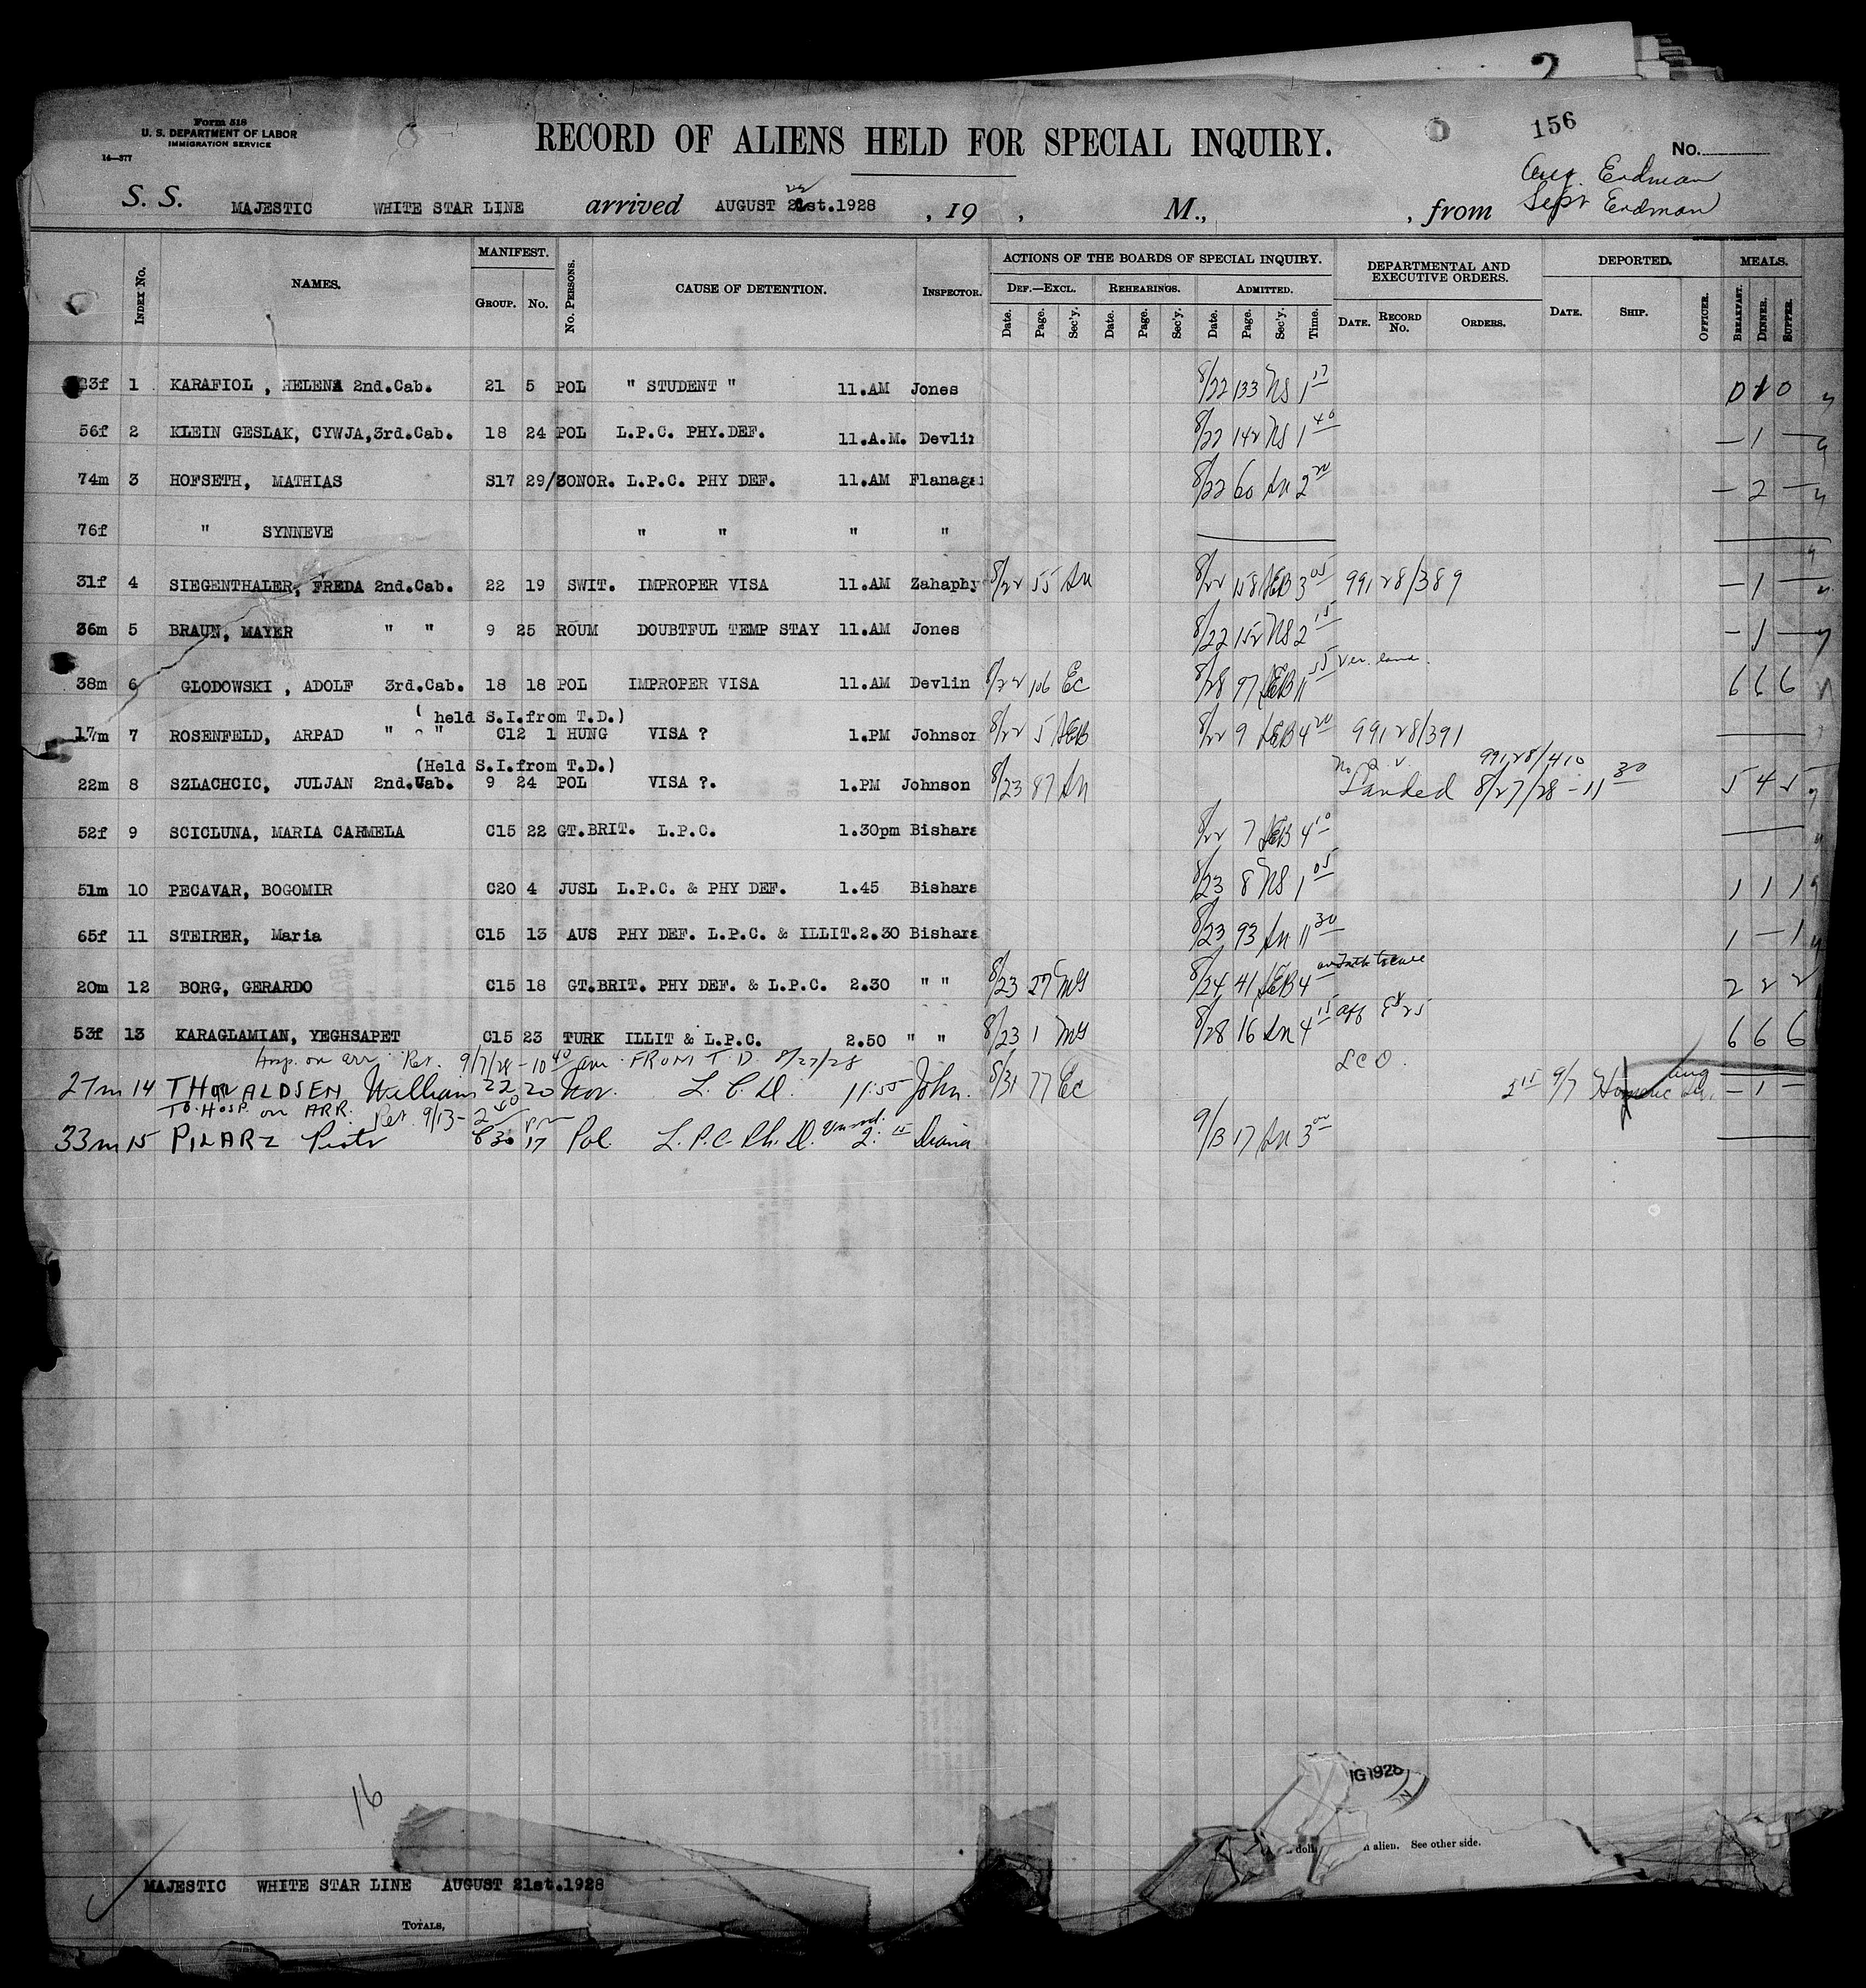 2
Form 518
U. S. DEPARTMENT OF LABOR
IMMIGRATION SERVICE
14—377
RECORD OF ALIENS HELD FOR SPECIAL INQUIRY.
156
No.
Aug. Erdman
Sept Erdman
S. S. MAJESTIC WHITE STAR LINE arrived AUGUST 21st.1928 , 19 , M., , from
INDEX No. NAMES. MANIFEST. GROUP. No. No. PERSONS. CAUSE OF DETENTION. INSPECTOR. ACTIONS OF THE BOARDS OF SPECIAL INQUIRY. DEPARTMENTAL AND EXECUTIVE ORDERS. DEPORTED. MEALS.
DEF.—EXCL. REHEARINGS. ADMITTED.
Date. Page. Sec'y. Date. Page. Sec'y. Date. Page. Sec'y. Time. DATE. RECORD No. ORDERS. DATE. SHIP. OFFICER. BREAKFAST. DINNER. SUPPER.
23f 1 KARAFIOL , HELENA 2nd.Cab. 21 5 POL " STUDENT " 11.AM Jones 8/22 133 NS 1 17 0 1 0
56f 2 KLEIN GESLAK, CYWJA,3rd.Cab. 18 24 POL L.P.C. PHY.DEF. 11.A.M. Devlin 8/22 142 NS 1 40 — 1 —
74m 3 HOFSETH, MATHIAS S17 29/30NOR. L.P.C. PHY DEF. 11.AM Flanagan 8/22 60 2 20 — 2 —
76f " SYNNEVE " " " "
31f 4 SIEGENTHALER, FREDA 2nd.Cab. 22 19 SWIT. IMPROPER VISA 11.AM Zahaphy 8/22 55 8/22 158 AEB 3 05 99128/389 — 1 —
36m 5 BRAUN, MAYER " " 9 25 ROUM DOUBTFUL TEMP STAY 11.AM Jones 8/22 152 NS 2 15 — 1 —
38m 6 GLODOWSKI , ADOLF 3rd.Cab. 18 18 POL IMPROPER VISA 11.AM Devlin 8/22 106 Ec 8/28 97 AEB 11 55 6 6 6
( held S.I.from T.D.)
17m 7 ROSENFELD, ARPAD " " C12 1 HUNG VISA ? 1.PM Johnson 8/22 5 AEB 8/22 9 AEB 4 20 99128/391
(Held S.I.from T.D.)
22m 8 SZLACHCIC, JULJAN 2nd.Cab. 9 24 POL VISA ?. 1.PM Johnson 8/23 87 99128/410 Landed 8/27/28 - 11 30 5 4 5
52f 9 SCICLUNA, MARIA CARMELA C15 22 GT.BRIT. L.P.C. 1.30pm Bishara 8/22 7 AEB 4 10
51m 10 PECAVAR, BOGOMIR C20 4 JUSL L.P.C. & PHY DEF. 1.45 Bishara 8/23 8 NS 1 05 1 1 1
65f 11 STEIRER, Maria C15 13 AUS PHY DEF. L.P.C. & ILLIT.2.30 Bishara 8/23 93 11 30 1 — 1
20m 12 BORG, GERARDO C15 18 GT.BRIT. PHY DEF. & L.P.C. 2.30 " " 8/23 27 MG 8/24 41 AEB 4 2 2 2
53f 13 KARAGLAMIAN, YEGHSAPET C15 23 TURK ILLIT & L.P.C. 2.50 " " 8/23 1 MG 8/28 16 4 15 6 6 6
Hosp. on arr. Ret. 9/7/28 - 10 40 am. FROM T.D. 8/27/28
27m 14 THORVALDSEN William 22 20 Nor. L.C.D. 11:55 John. 8/31 77 Ec LCD 3 15 9/7 Homeric — 1 —
To Hosp. on ARR. Ret. 9/13 - 2 40 pm
33m 15 PILARZ Piotr C30 17 Pol. L.P.C. Ph. D. 2: 15 9/13 17 3 00
16
G 1928
alien. See other side.
MAJESTIC WHITE STAR LINE AUGUST 21st.1928
TOTALS,